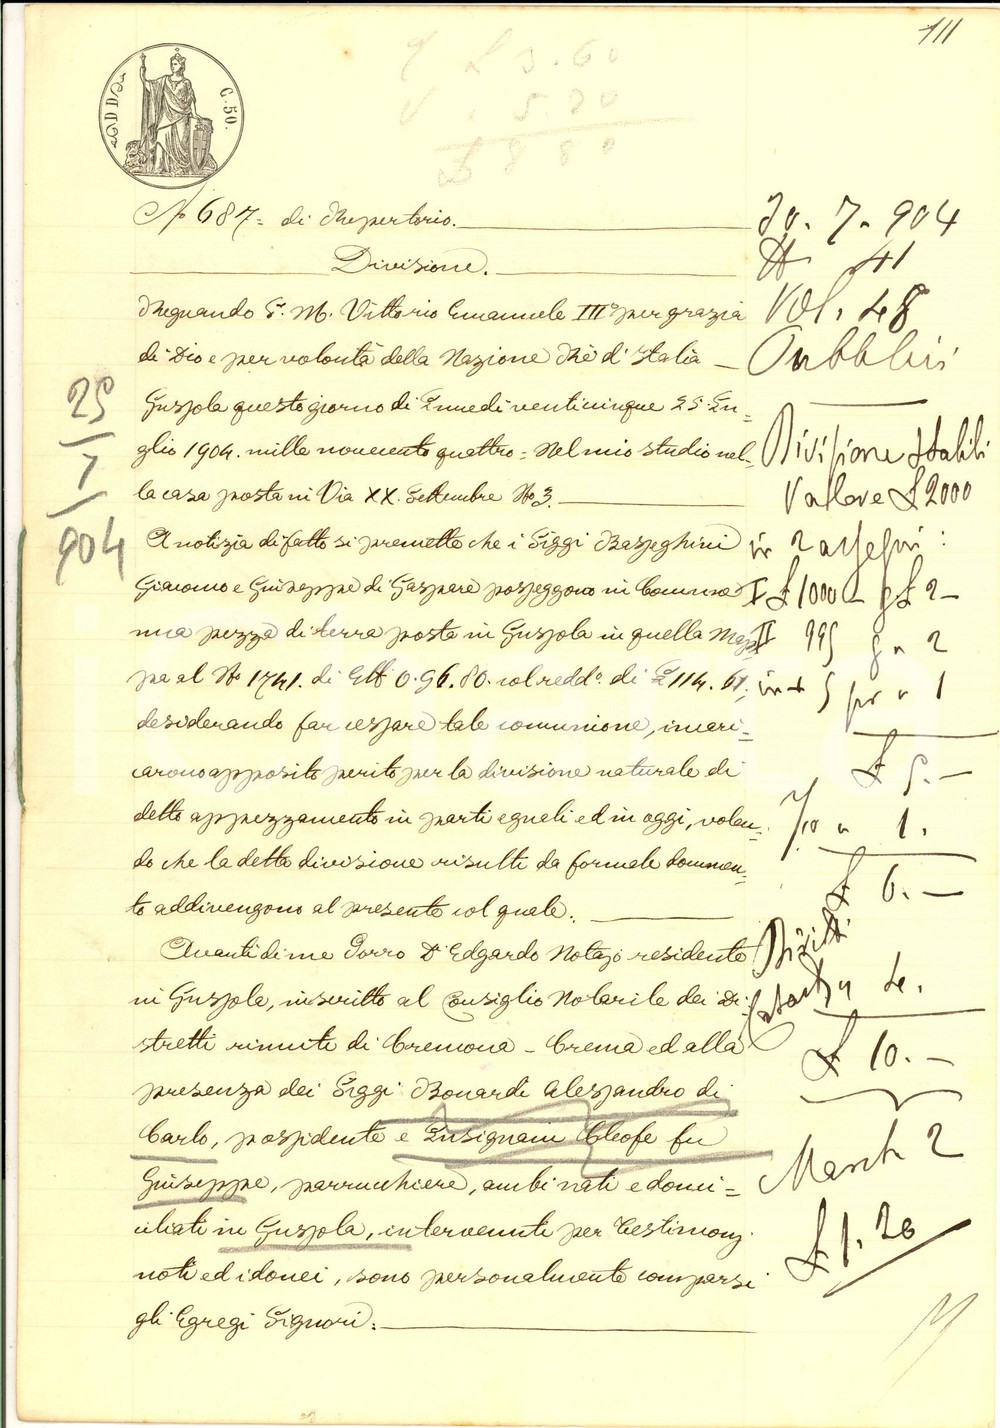 111
C. 50.
£ 3.60
5.20
£ 8 80
N° 687 = di Repertorio.
Divisione.
Regnando S. M. Vittorio Emanuele III° per grazia
di Dio e per volontà della Nazione Rè d'Italia
Gussola questo giorno di Lunedi venticinque 25 Lu=
glio 1904. mille novecento quattro = Nel mio studio nel=
la casa posta in Via XX. Settembre N° 3.
A notizia di fatto si premette che i Siggi
Giacomo e Giuseppe di Gaspare posseggono in Comune
una pezza di terra posta in Gussola in quella Map=
pa al N° 1741. di Ett 0.96.80. col redd° di £ 114. 61,
desiderando far cessare tale comunione, incari=
carono apposito perito per la divisione naturale di
detto appezzamento in parti eguali ed in oggi, volen=
do che la detta divisione risulti da formale documen=
to addivengono al presente col quale.
Avanti di me Porro Dr Edgardo Notajo residente
in Gussola, inscritto al Consiglio Notarile dei Di=
stretti riuniti di Cremona - Crema ed alla
presenza dei Siggi Bonardi Alessandro di
Carlo, possidente e Insignani Cleofe fu
Giuseppe, parrucchiere, ambi nati e domi=
ciliati in Gussola, intervenuti per testimonj
noti ed idonei, sono personalmente comparsi
gli Egregi Signori:
25
7
904
30. 7. 904
N 41
Vol. 48
Pubblici
Divisione Stabili
Valore £ 2000
in 2 assegni:
I £ 1000 - p £ 2 -
II 995 p " 2
in + 5 per " 1
£ 5. -
1.
£ 6. -
Diritti
Catasto " 4.
£ 10. -
March 2
£ 1.20